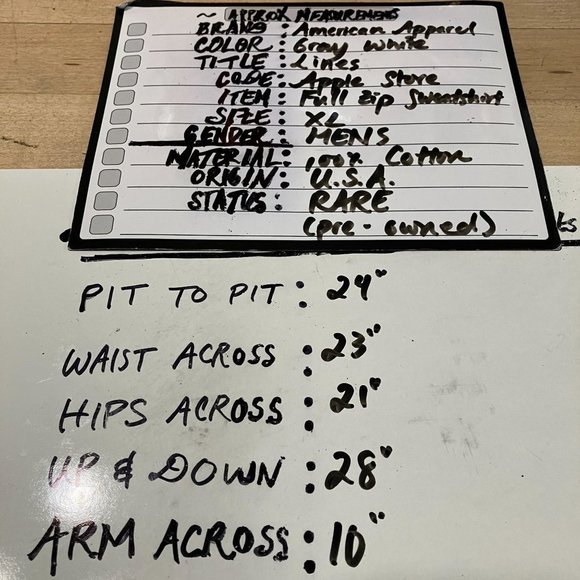 ~ APPROX MEASUREMENTS
BRAND: American Apparel
COLOR: Gray White
TITLE: Lines
CODE: Apple Store
ITEM: Full Zip Sweatshirt
SIZE: XL
GENDER: MENS
MATERIAL: 100% Cotton
ORIGIN: U.S.A.
STATUS: RARE
(pre-owned)
PIT TO PIT: 24"
WAIST ACROSS: 23"
HIPS ACROSS: 21"
UP & DOWN: 28"
ARM ACROSS: 10"